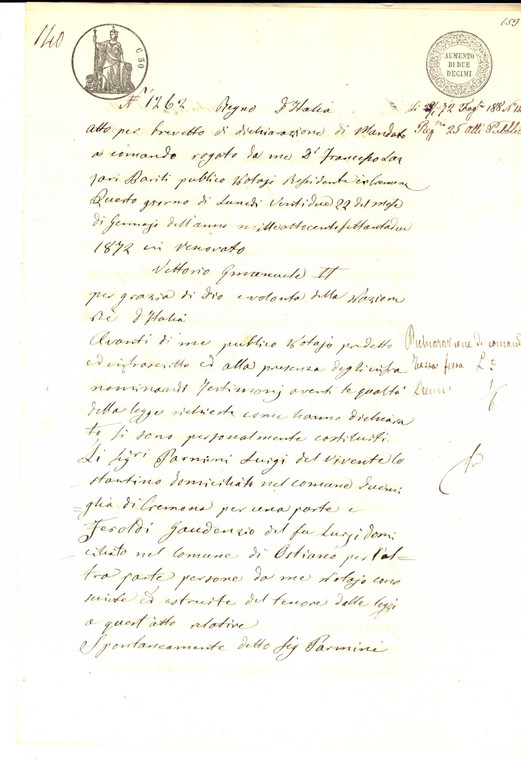 140
159
C. 50
AUMENTO
DI DUE
DECIMI
N° 1262 Regno d'Italia
atto per brevetto di dichiarazione di Mandato
a comando rogato da me Dr Francesco Laz
zari Bariti publico Notajo Residente in Cremona
Questo giorno di Lunedi Ventidue 22 del mese
di Gennajo dell'anno milleottocentosettantadue
1872 in Venorato
72 Fog° 188 N°
Reg 25 atti Pubblici
Vittorio Emanuele II
per grazia di Dio e volontà della Nazione
Re d'Italia
Avanti di me publico Notajo predetto
ed infrascritto ed alla presenza degli infra
nominandi Testimonj aventi le qualità
della legge richieste come hanno dichiara
to, si sono personalmente costituiti
Dichiarazione di comando
Tassa fissa L 5
Decimi 1
6
Li Sigri Parmini Luigi del vivente Co
stantino domiciliato nel comune Duemi
glia di Cremona per una parte e
Feroldi Gaudenzio del fu Luigi domi
ciliato nel comune di Ostiano per l'al
tra parte persone da me Notajo cono
sciute ed istruite del tenore delle leggi
a quest'atto relative
Spontaneamente detto Sig Parmini